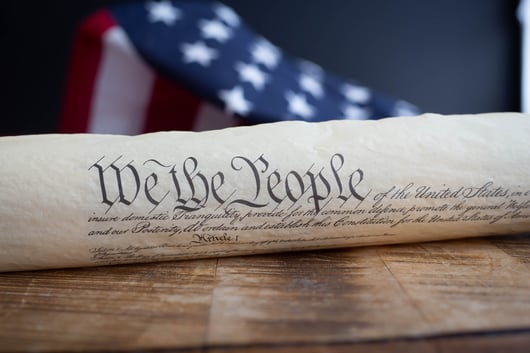 We the People of the United States, in
insure domestic Tranquility, provide for the common defence, promote the general
and our Posterity, do ordain and establish this Constitution for the United States of
Article I